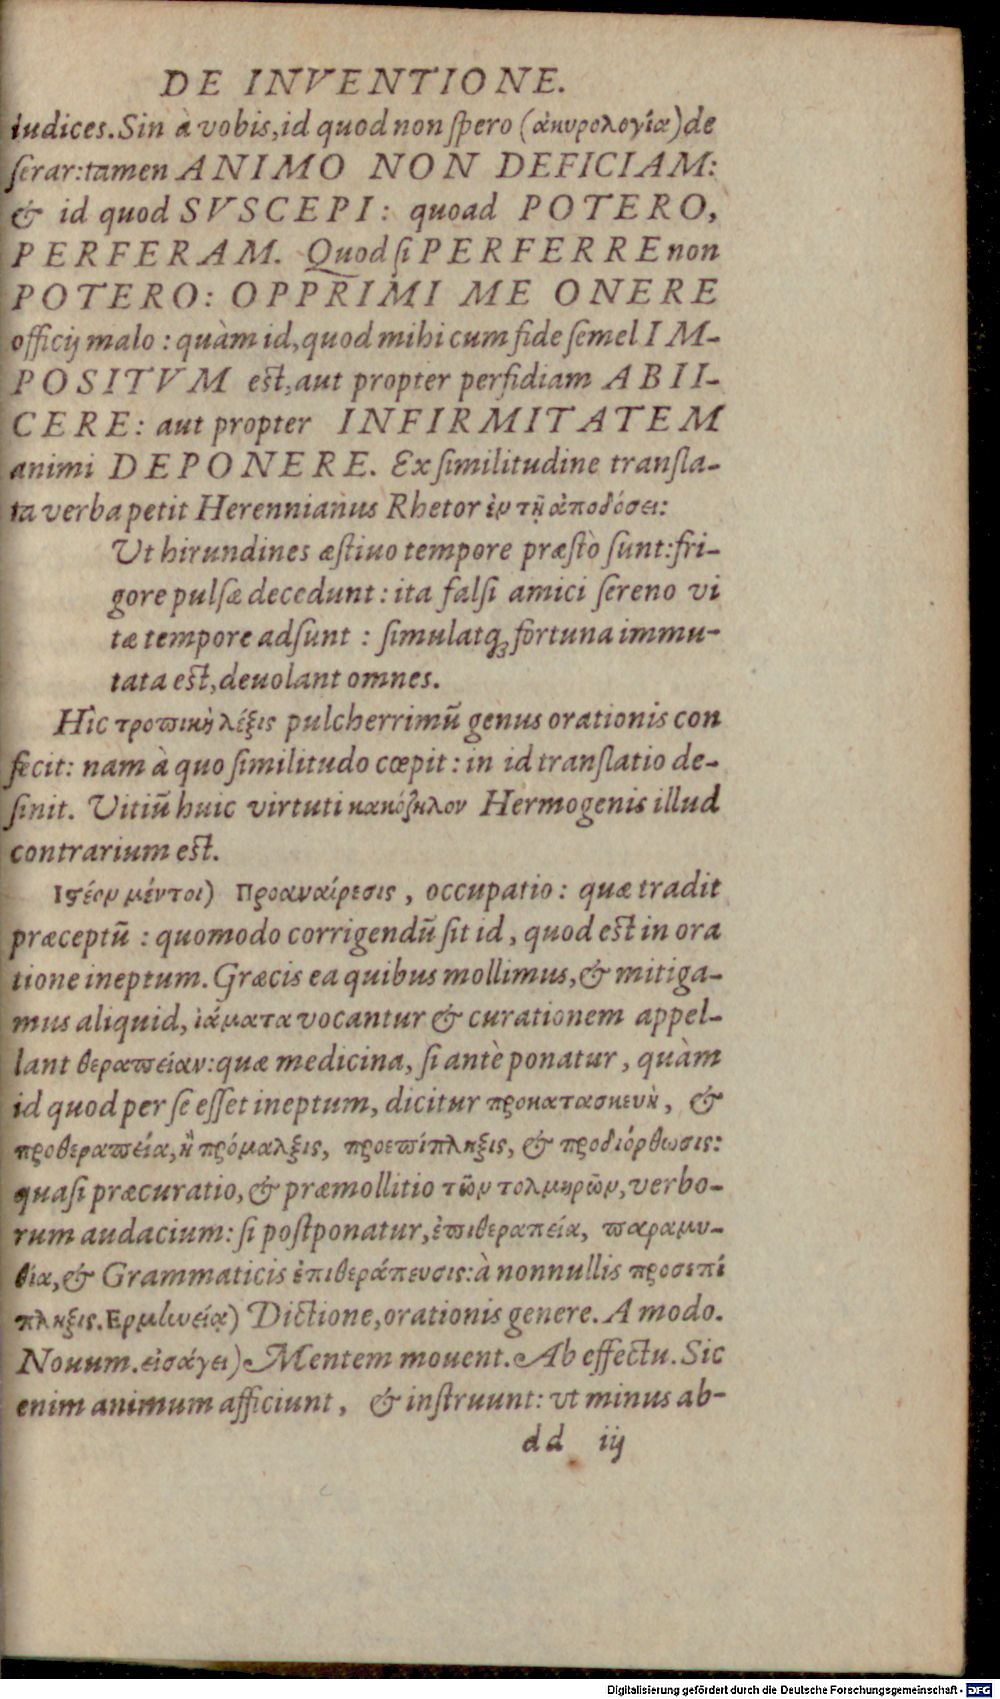 DE INVENTIONE.
iudices. Sin à vobis, id quod non spero (ἀκυρολογία) de
serar: tamen ANIMO NON DEFICIAM:
& id quod SVSCEPI: quoad POTERO,
PERFERAM. Quod si PERFERRE non
POTERO: OPPRIMI ME ONERE
officij malo: quàm id, quod mihi cum fide semel IM-
POSITVM est, aut propter perfidiam ABII-
CERE: aut propter INFIRMITATEM
animi DEPONERE. Ex similitudine transla-
ta verba petit Herennianus Rhetor ἐν τῇ ἀποδόσει:
Vt hirundines æstiuo tempore præstò sunt: fri-
gore pulsæ decedunt: ita falsi amici sereno vi
tæ tempore adsunt: simulatq́; fortuna immu-
tata est, deuolant omnes.
Hîc τροπικὴ λέξις pulcherrimũ genus orationis con
fecit: nam à quo similitudo cœpit: in id translatio de-
sinit. Vitiũ huic virtuti κακόζηλον Hermogenis illud
contrarium est.
Ἰστέον μέντοι) Προαναίρεσις, occupatio: quæ tradit
præceptũ: quomodo corrigendũ sit id, quod est in ora
tione ineptum. Græcis ea quibus mollimus, & mitiga-
mus aliquid, ἰάματα vocantur & curationem appel-
lant θεραπείαν: quæ medicina, si antè ponatur, quàm
id quod per se esset ineptum, dicitur προκατασκευὴ, &
προθεραπεία, ἢ πρόμαλξις, προεπίπληξις, & προδιόρθωσις:
quasi præcuratio, & præmollitio τῶν τολμηρῶν, verbo-
rum audacium: si postponatur, ἐπιθεραπεία, παραμυ-
θία, & Grammaticis ἐπιθεράπευσις: à nonnullis προσεπί
πληξις. Ἑρμηνεία) Dictione, orationis genere. A modo.
Nouum. εἰσάγει) Mentem mouent. Ab effectu. Sic
enim animum afficiunt, & instruunt: vt minus ab-
dd iij
Digitalisierung gefördert durch die Deutsche Forschungsgemeinschaft - DFG